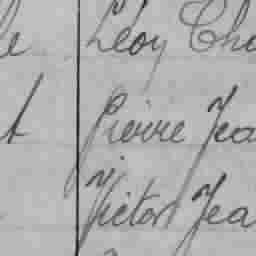 le Léon Cha
t Pierre Jea
Victor Jea